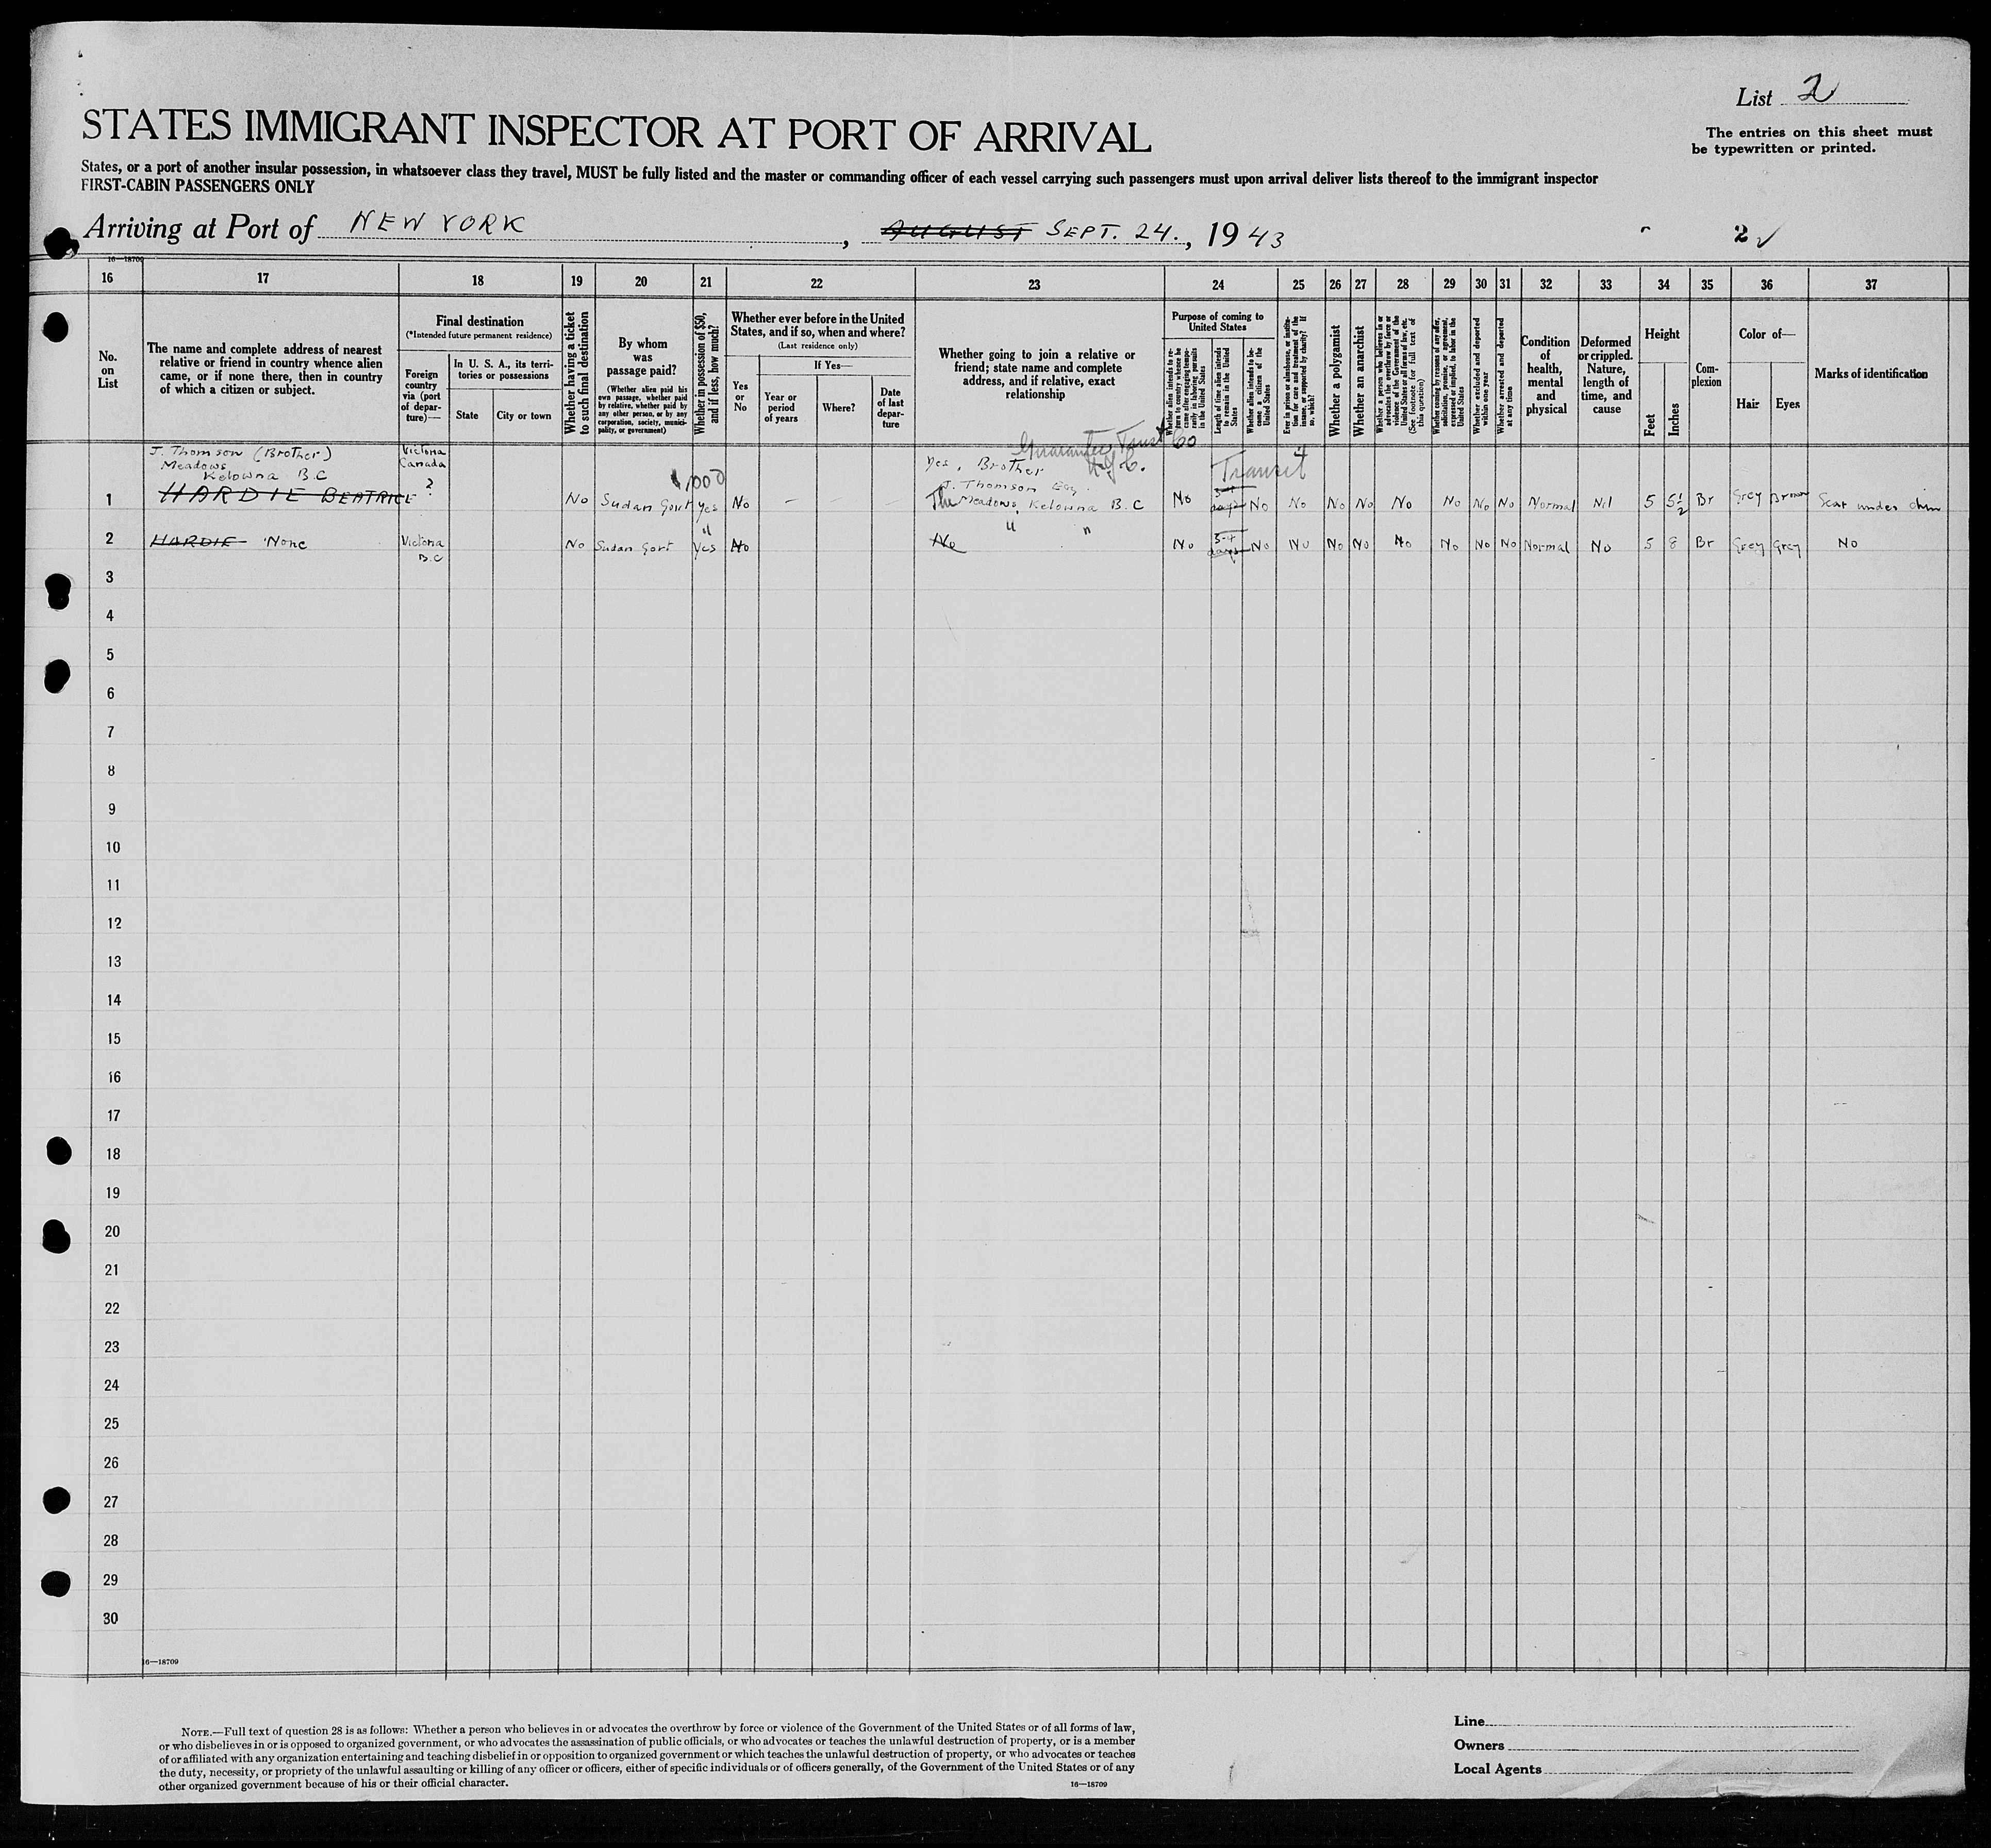 List 2
STATES IMMIGRANT INSPECTOR AT PORT OF ARRIVAL
The entries on this sheet must
be typewritten or printed.
States, or a port of another insular possession, in whatsoever class they travel, MUST be fully listed and the master or commanding officer of each vessel carrying such passengers must upon arrival deliver lists thereof to the immigrant inspector
FIRST-CABIN PASSENGERS ONLY
Arriving at Port of NEW YORK, AUGUST SEPT. 24., 1943 2
16—18709
16 17 18 19 20 21 22 23 24 25 26 27 28 29 30 31 32 33 34 35 36 37
No. on List
The name and complete address of nearest
relative or friend in country whence alien
came, or if none there, then in country
of which a citizen or subject.
Final destination
(*Intended future permanent residence)
Foreign country via (port of departure)—
In U. S. A., its territories or possessions
State
City or town
Whether having a ticket to such final destination
By whom was passage paid?
(Whether alien paid his own passage, whether paid by relative, whether paid by any other person, or by any corporation, society, municipality, or government)
Whether in possession of $50, and if less, how much?
Whether ever before in the United States, and if so, when and where?
(Last residence only)
Yes or No
If Yes—
Year or period of years
Where?
Date of last departure
Whether going to join a relative or
friend; state name and complete
address, and if relative, exact
relationship
Purpose of coming to United States
Whether alien intends to return to country whence he came after engaging temporarily in laboring pursuits in the United States
Length of time alien intends to remain in the United States
Whether alien intends to become a citizen of the United States
Ever in prison or almshouse, or institution for care and treatment of the insane, or supported by charity? If so, which?
Whether a polygamist
Whether an anarchist
Whether a person who believes in or advocates the overthrow by force or violence of the Government of the United States or all forms of law, etc. (See footnote for full text of this question)
Whether coming by reason of any offer, solicitation, promise, or agreement, expressed or implied, to labor in the United States
Whether excluded and deported within one year
Whether arrested and deported at any time
Condition of health, mental and physical
Deformed or crippled. Nature, length of time, and cause
Height
Feet
Inches
Complexion
Color of—
Hair
Eyes
Marks of identification
Guarantee Trust Co
N.Y.C.
J. Thomson (Brother)
Meadows
Kelowna B.C
Victoria Canada ?
$1000
Yes, Brother
J. Thomson Esq.
Transit
1 HARDIE BEATRICE No Sudan Govt yes No – – The Meadows, Kelowna B.C No 3-4 days No No No No No No No No Normal Nil 5 5½ Br Grey Brown Scar under chin
" " "
2 HARDIE None Victoria B.C No Sudan Govt Yes No No No 3-4 days No No No No No No No No Normal No 5 8 Br Grey Grey No
3
4
5
6
7
8
9
10
11
12
13
14
15
16
17
18
19
20
21
22
23
24
25
26
27
28
29
30
16—18709
NOTE.—Full text of question 28 is as follows: Whether a person who believes in or advocates the overthrow by force or violence of the Government of the United States or of all forms of law,
or who disbelieves in or is opposed to organized government, or who advocates the assassination of public officials, or who advocates or teaches the unlawful destruction of property, or is a member
of or affiliated with any organization entertaining and teaching disbelief in or opposition to organized government or which teaches the unlawful destruction of property, or who advocates or teaches
the duty, necessity, or propriety of the unlawful assaulting or killing of any officer or officers, either of specific individuals or of officers generally, of the Government of the United States or of any
other organized government because of his or their official character.
16—18709
Line
Owners
Local Agents